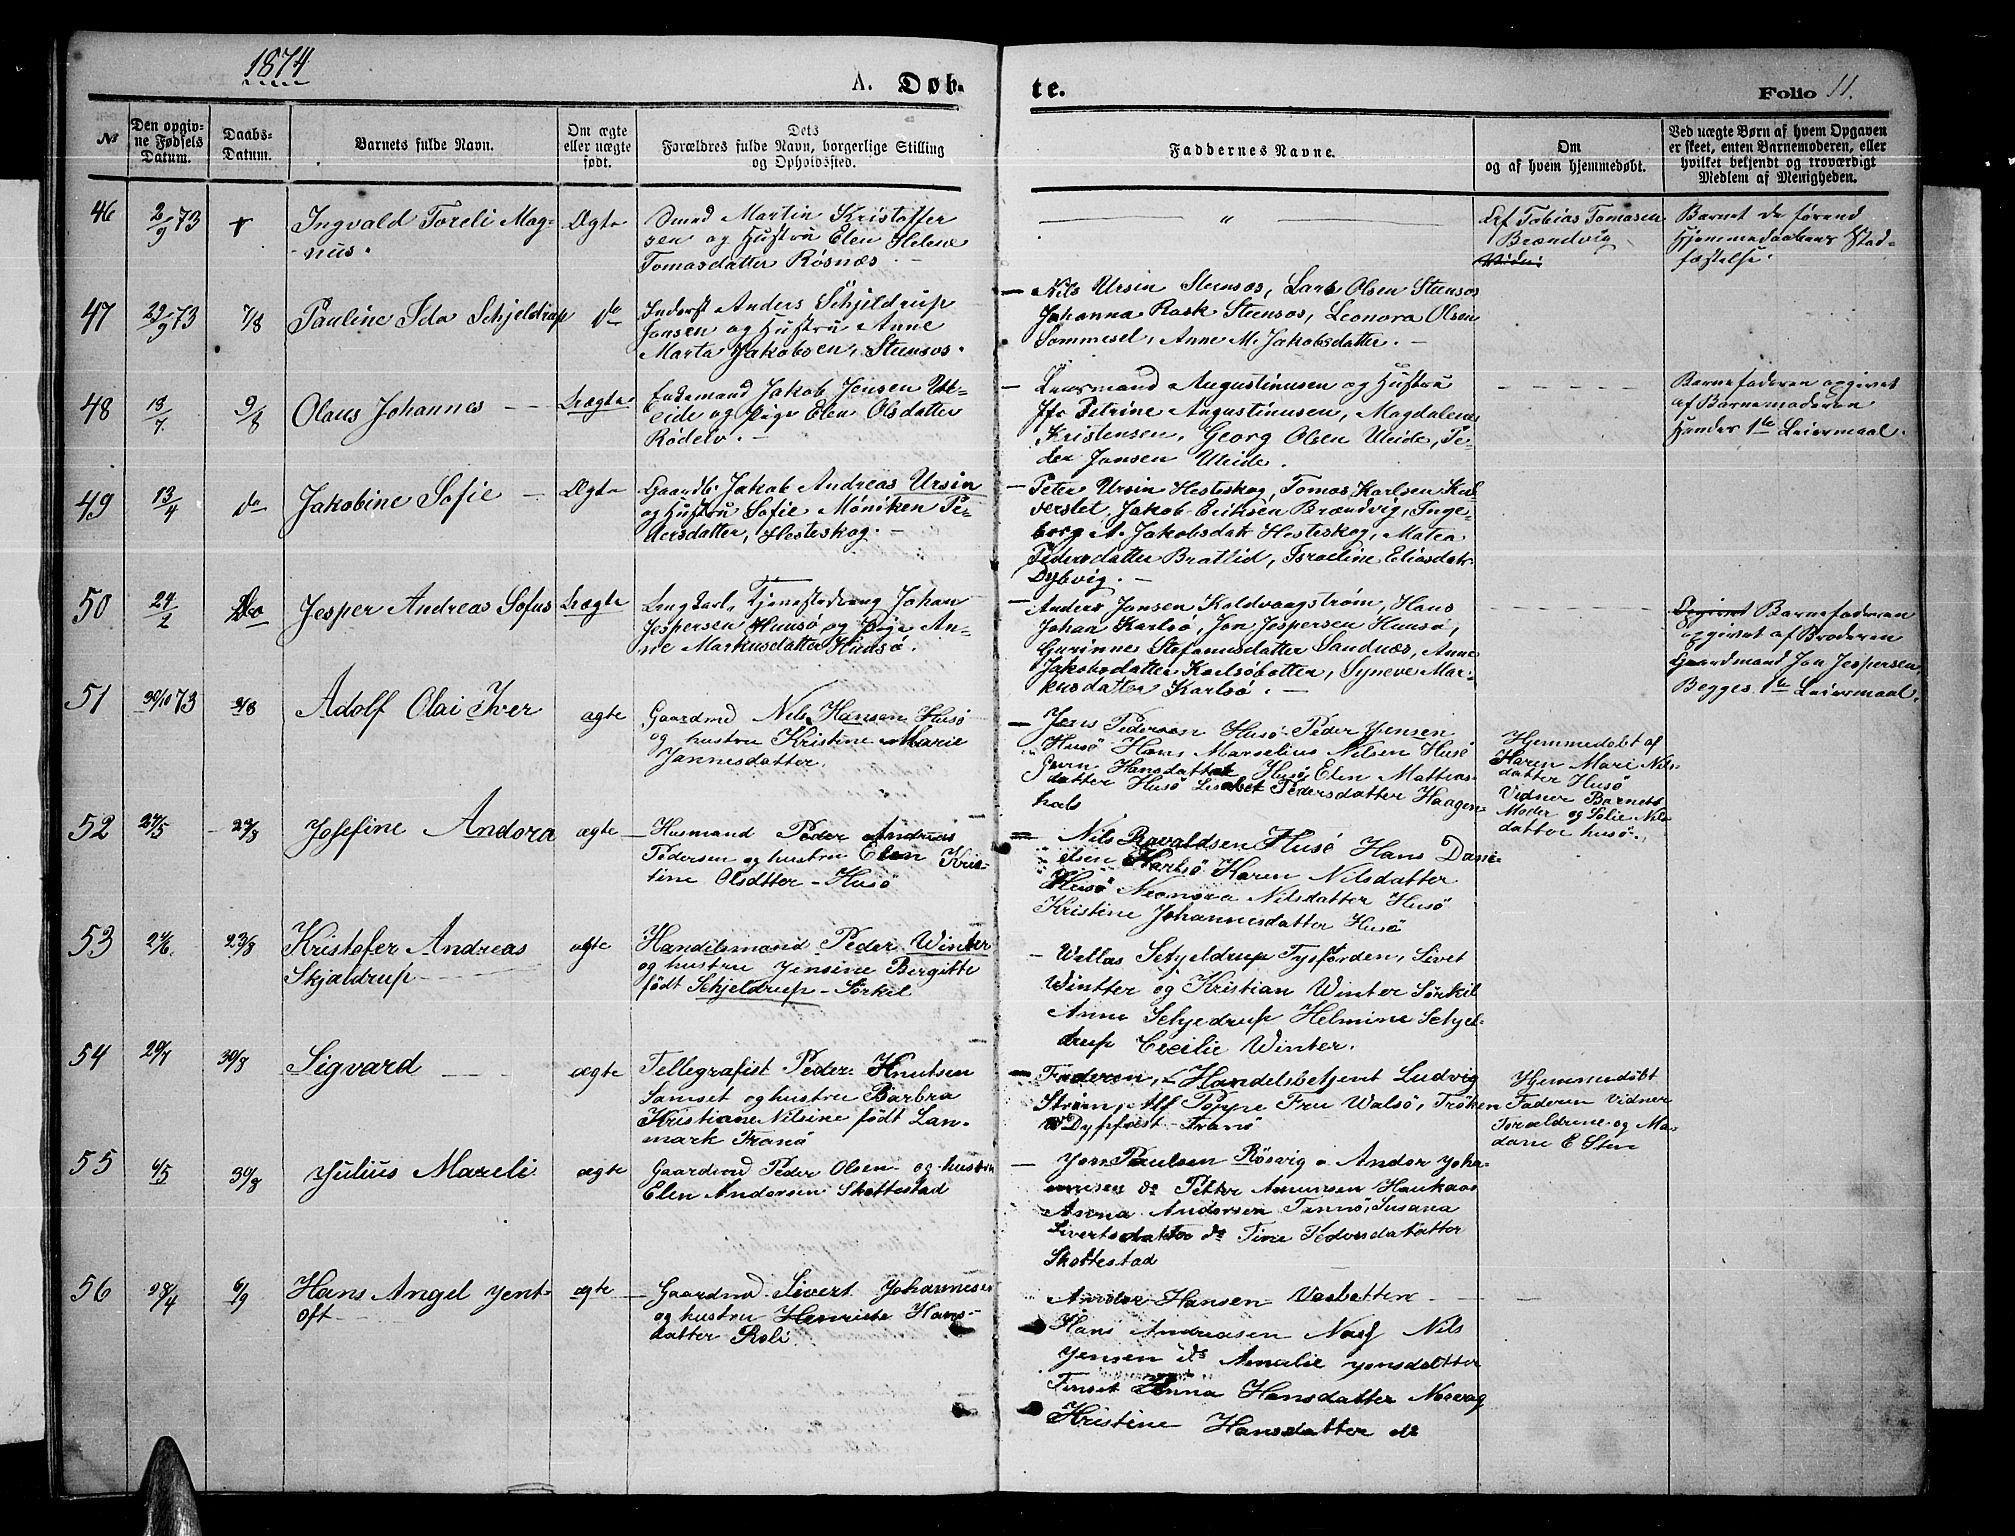 1874
A. Døb-
te.
Folio 11.
№
Den opgiv-
ne Fødsels
Datum.
Daabs-
Datum.
Barnets fulde Navn.
Om ægte
eller uægte
født.
Dets
Forældres fulde Navn, borgerlige Stilling
og Opholdssted.
Faddernes Navne.
Om
og af hvem hjemmedøbt.
Ved uægte Børn af hvem Opgaven
er skeet, enten Barnemoderen, eller
hvilket bekjendt og troværdigt
Medlem af Menigheden.
46 2/9 73 + Ingvald Toreli Mag-
nus. Ægte
Martin Kristoffer
sen og Hustru Elen Helene
Tomasdatter Røsnæs.
"
Tobias Tomasen
Brændvig
Barnet dø førend
Hjemmedaabens Stad-
fæstelse.
47 29/9 73 7/8 Pauline Ida Schjeldrup do
Inderst Anders Schjeldrup
Jansen og Hustru Anne
Marta Jakobsen, Stensos.
Nils Ursin Stensos, Lars Olsen Stensos
Johanna Rask Stensos, Leonora Olsen
Sommesel, Anne M. Jakobsdatter.
48 13/7 9/8 Olaus Johannes Uægte
Enkemand Jakob Jensen Ul-
eide og Pige Elen Olsdatter
Rødelv.
Leiermand Augustinusen og Hustru
Petrine Augustinusen, Magdalena
Kristensen, Georg Olsen Uleide, Pe-
der Jansen Uleide.
Barnefaderen opgivet
af Barnemoderen
Hendes 1te Leiermaal.
49 13/4 do Jakobine Sofie Ægte
Gaardbr. Jakob Andreas Ursin
og Hustru Sofie Møniken Pe-
dersdatter, Hesteskog.
Peter Ursin Hesteskog, Tomas Karlsen
Jakob Eriksen Brændvig, Inge-
borg A. Jakobsdatr Hesteskog, Matea
Pedersdatter Bratlid, Israeline Eliasdatr
Dybvig.
50 24/2 Do Jesper Andreas Sofus Uægte
Ungkarl, Johan
Jespersen Huusø og Pige An-
ne Markusdatter Huusø.
Anders Jansen Kaldvaagstrøm, Hans
Johan Karlsø, Jon Jespersen Huusø,
Gurinnes Stefanusdatter Sandnæs, Anne
Jakobsdatter Karlsøbotter, Syneve Mar-
kusdatter Karlsø.
Opgivet Barnefaderen
opgivet af Broderen
Gaardmand Jon Jespersen,
Begges 1te Leiermaal.
51 30/10 73 9/8 Adolf Olai Iver ægte
Gaardmd Nils Hansen Husø
og hustru Kristine Marie
Jannesdatter.
Jens Pedersen Husø Peder Jensen
Husø Hans Marselius Nilsen Husø
Hansdatter Husø, Elen Mattias-
datter Husø Lisabet Pedersdatter Haagen-
hals
Hjemmedøbt af
Karen Mari Nils-
datter Husø
Vidner Barnets
Moder og Nils-
datter husø.
52 24/5 23/8 Josefine Andora ægte
Husmand Peder Andreas
Pedersen og hustru Elen Kris-
tine Olsdtter Husø
Nils Ravaldsen Husø Hans Dani-
elsen Karlsø Karen Nilsdatter
Husø Neonora Nilsdatter Husø
Kristine Johannesdatter Husø
53 24/6. 23/8 Kristofer Andreas
Skjældrup ægte
Handelsmand Peder Winter
og hustru Jensine Bergitte
født Schjeldrup Sørkil
Wellas Schjeldrup Tysfjorden, Sivet
Wintter og Kristian Winter Sørkil
Anna Schjedrup Helmine Schjel-
drup Cicilie Winter.
54 29/7 30/8 Sigvard ægte
Tellegrafist Peder Knutsen
Samset og hustru Barbra
Kristiane Nilsine født Lan-
mark Tranø
Faderen, Handelsbetjent Ludvig
Strøm, Alf Poppe Fru Walsø, Frøken
Dypfæst Tranø
Hjemmedøbt
Faderen Vidner
Foraldrene og Ma-
dam E Sten
55 6/5 30/8 Julius Mareli ægte
Gaardmd Peder Olsen og hustru
Elen Andersen Skottestad
Jorn Paulsen Røsvig o Andor Joha-
nnesen do Petter Amunsen Haukaas
Anna Andersen Finnø, Susana
Sivertsdatter do Tine Pedersdatatter
Skottestad
56 28/4 6/9 Hans Angel Jent-
oft ægte
Gaardmd Sivert Johannesen
og hustru Henriete Hans-
datter Roli
Andor Hansen Vasbotten
Hans Andreasen Næss Nils
Jensen do Amalie Jensdatter
Finset Anna Hansdatter Norvag
Kristine Hansdatter do